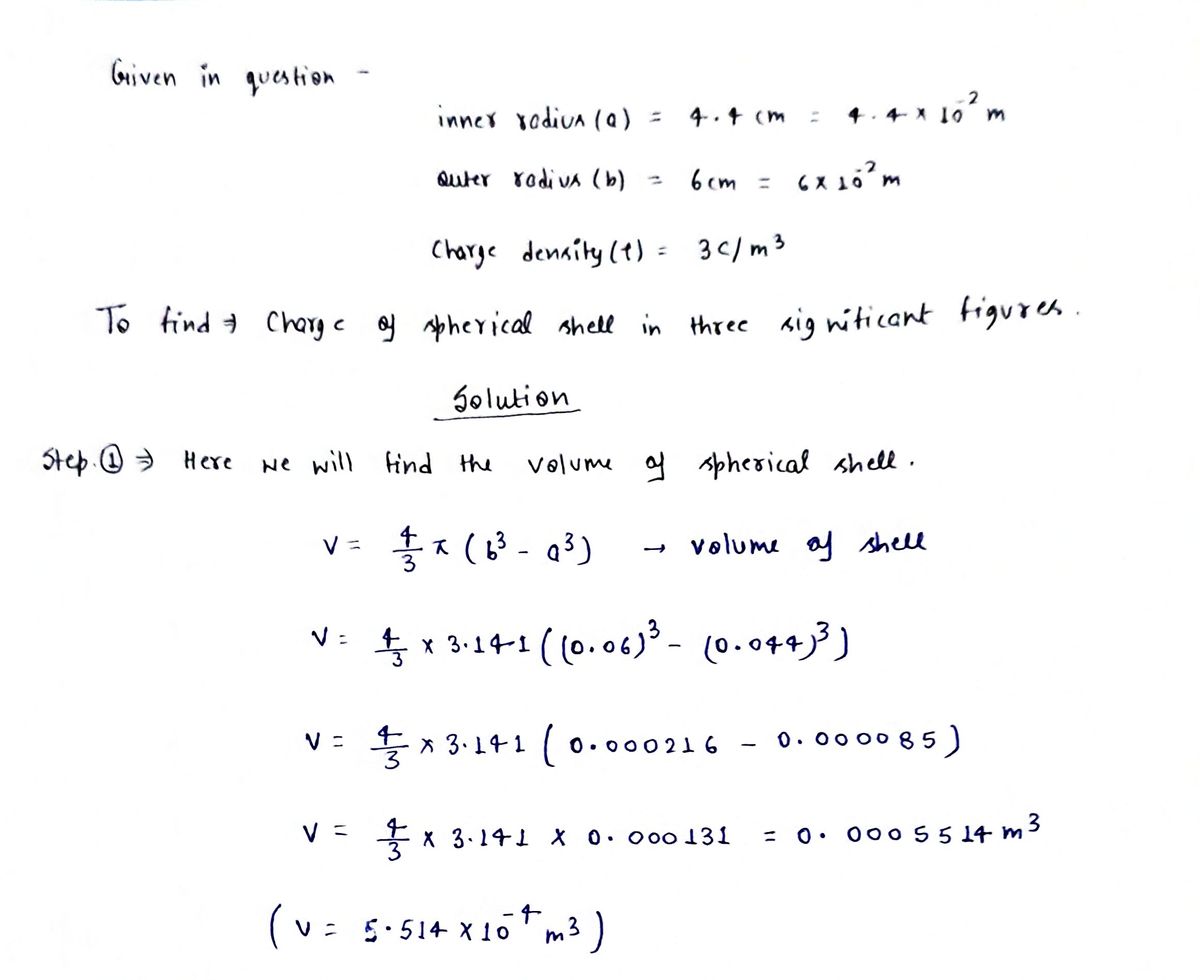 Given in question -
inner radius (a) = 4.4 cm = 4.4 × 10⁻² m
outer radius (b) = 6cm = 6 × 10⁻² m
Charge density (ρ) = 3 C/m³
To find ⇒ Charge of spherical shell in three significant figures.
Solution
Step. ① ⇒ Here we will find the volume of spherical shell.
V = 4/3 π (b³ - a³) → volume of shell
V = 4/3 × 3.141 ((0.06)³ - (0.044)³)
V = 4/3 × 3.141 (0.000216 - 0.000085)
V = 4/3 × 3.141 × 0.000131 = 0.0005514 m³
(V = 5.514 × 10⁻⁴ m³)